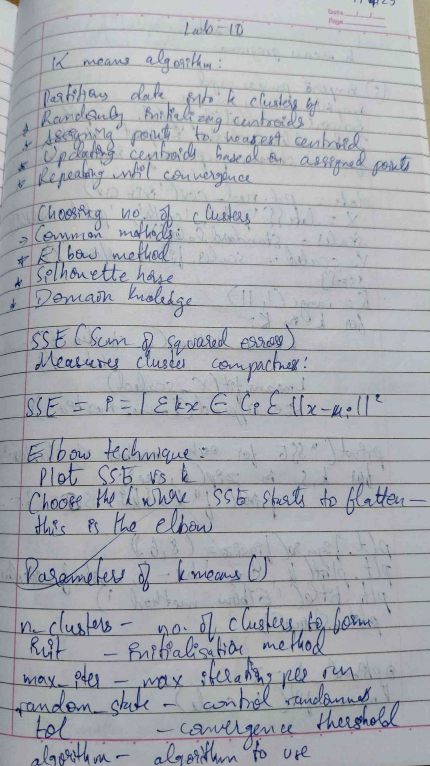 Lab-10
Date
Page
K means algorithm:
Partitions data into k clusters by
* Randomly initializing centroids
* Assigning points to nearest centroid
* Updating centroids based on assigned points
* Repeating until convergence
Choosing no. of clusters
-> Common methods:
* Elbow method
* Silhouette
* Domain knoledge
SSE (Sum of squared errors)
Measures cluster compactness:
SSE = i = 1 Σ k x ∈ Ci Σ ||x - μi||²
Elbow technique:
Plot SSE vs k
Choose the k where SSE starts to flatten —
this is the elbow
Parameters of kmeans()
n_clusters - no. of clusters to form
init - initialisation method
max_iter - max iterating per run
random_state - control randomness
tol - convergence threshold
algorithm - algorithm to use